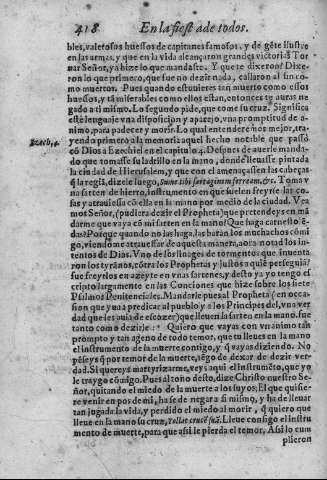 418 En la fiesta de todos.
bles, valerosos huessos de capitanes famosos, y de gēte ilustre
en las armas, y que en la vida alcançaron grandes victorias? To
mar Señor, ya hize lo que mandaste. Y que te dixeron? Dixe-
ron lo que primero, que fue no dezir nada, callaron al fin co-
mo muertos. Pues quando estuuieres tan muerto como essos
huessos, y tā miserables como ellos estan, entonces te auras ne-
gado a ti mismo. Lo segundo pide, que tome su cruz. Significa
este lenguaje vna disposicion y aparejo, vna promptitud de a-
nimo, para padecer y morir. Lo qual entendere mos mejor, tra-
yendo primero a la memoria aquel hecho notable que passò
Ezech. 4. cō Dios a Ezechiel en el capitulo 4. Despues de auerle manda-
do que tomasse su ladrillo en la mano, donde lleuasse pintada
la ciudad de Hierusalem, y que con el amenaçassen las cabeças
q̄ la regiā, dizele luego, Sume tibi sartaginem ferream, &c. Toma v
na sarten de hierro, instrumento en que suelen freyrse las co-
sas y atrauiessa cō ella en la mano por medio de la ciudad. Vea
mos Señor, (pudiera dezir el Propheta) que pretendeys en mā
darme que vaya cō mi sarten en la mano? Que haga carnestolē
das? Porque quando no las haga, las harān los muchachos cōmi
go, viendome atrauessar de aquesta manera, aora notad los in-
tentos de Dios. Vno de los linages de tormentos que inuenta
ron los tyranos, cōtra los Prophetas y justos a quiē perseguiā?
fue freyrlos en azeyte en vnas sartenes, y desto ya yo tengo es
cripto largamente en las Canciones que hize sobre los siete
Psalmos Penitenciales. Mandarle pues al Propheta (en occa-
sion que yua a predicar al pueblo y a los Principes del, vna ver
dad que les auia de escozer) que lleuen la sarten en la mano, fue
tanto como dezirle: Quiero que vayas con vn animo tan
prompto y tan ageno de todo temor, que tu lleues en la mano
el instrumento de la muerte contigo, y q̄ vayas diziendo. No
pēseys q̄ por temor de la muerte, tēgo de dexar de dezir ver-
dad. Si quereys martyrizarme, veys aqui el instrumēto, que yo
le traygo cōmigo. Pues al tono desto, dize Christo nuestro Se-
ñor, quitando el miedo de la muerte a los suyos. El que quisie-
re venir en pos de mi, ha se de negar a si mismo, y ha de lleuar
tan jugada la vida, y perdido el miedo al morir, q̄ quiero que
lleue en la mano su cruz, Tollat crucē suā. Lleue consigo el instru
mento de muerte, para que assi le pierda el temor. Assi lo cum
plieron